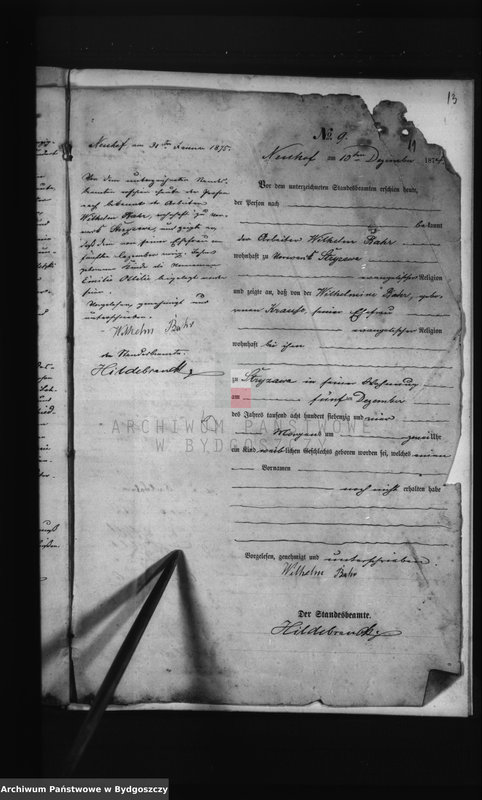 13
Neuhof am 31ten Januar 1875.
Vor dem unterzeichneten Standes-
beamten erschien heute der Person
nach bekannt der Arbeiter
Wilhelm Bahr, wohnhaft zu Vor-
werk Stryzawa und zeigte an,
daß dem von seiner Ehefrau am
fünften Dezember vorig. Jahres
geborenen Kinde die Vornamen
Emilie Ottilie beigelegt worden
seien.
Vorgelesen, genehmigt und
unterschrieben.
Wilhelm Bahr
der Standesbeamte.
Hildebrandt
No. 9.
Neuhof am 10ten Dezember 1874.
Vor dem unterzeichneten Standesbeamten erschien heute,
der Person nach
bekannt
der Arbeiter Wilhelm Bahr
wohnhaft zu Vorwerk Stryzawa
evangelischer Religion
und zeigte an, daß von der Wilhelmine Bahr, gebo-
renen Krause, seiner Ehefrau
evangelischer Religion
wohnhaft bei ihm
zu Stryzawa in seiner Behausung
am fünften Dezember
des Jahres tausend acht hundert siebenzig und vier
Morgens um zwei Uhr
ein Kind weiblichen Geschlechts geboren worden sei, welches einen
Vornamen
noch nicht erhalten habe
Vorgelesen, genehmigt und unterschrieben.
Wilhelm Bahr
Der Standesbeamte.
Hildebrandt
ARCHIWUM PAŃSTWOWE
W BYDGOSZCZY
Archiwum Państwowe w Bydgoszczy